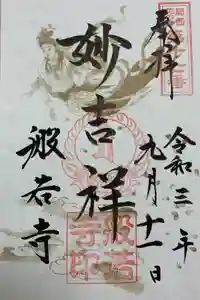 奉拝
令和三年
九月十一日
妙吉祥
般若寺
般若
寺印